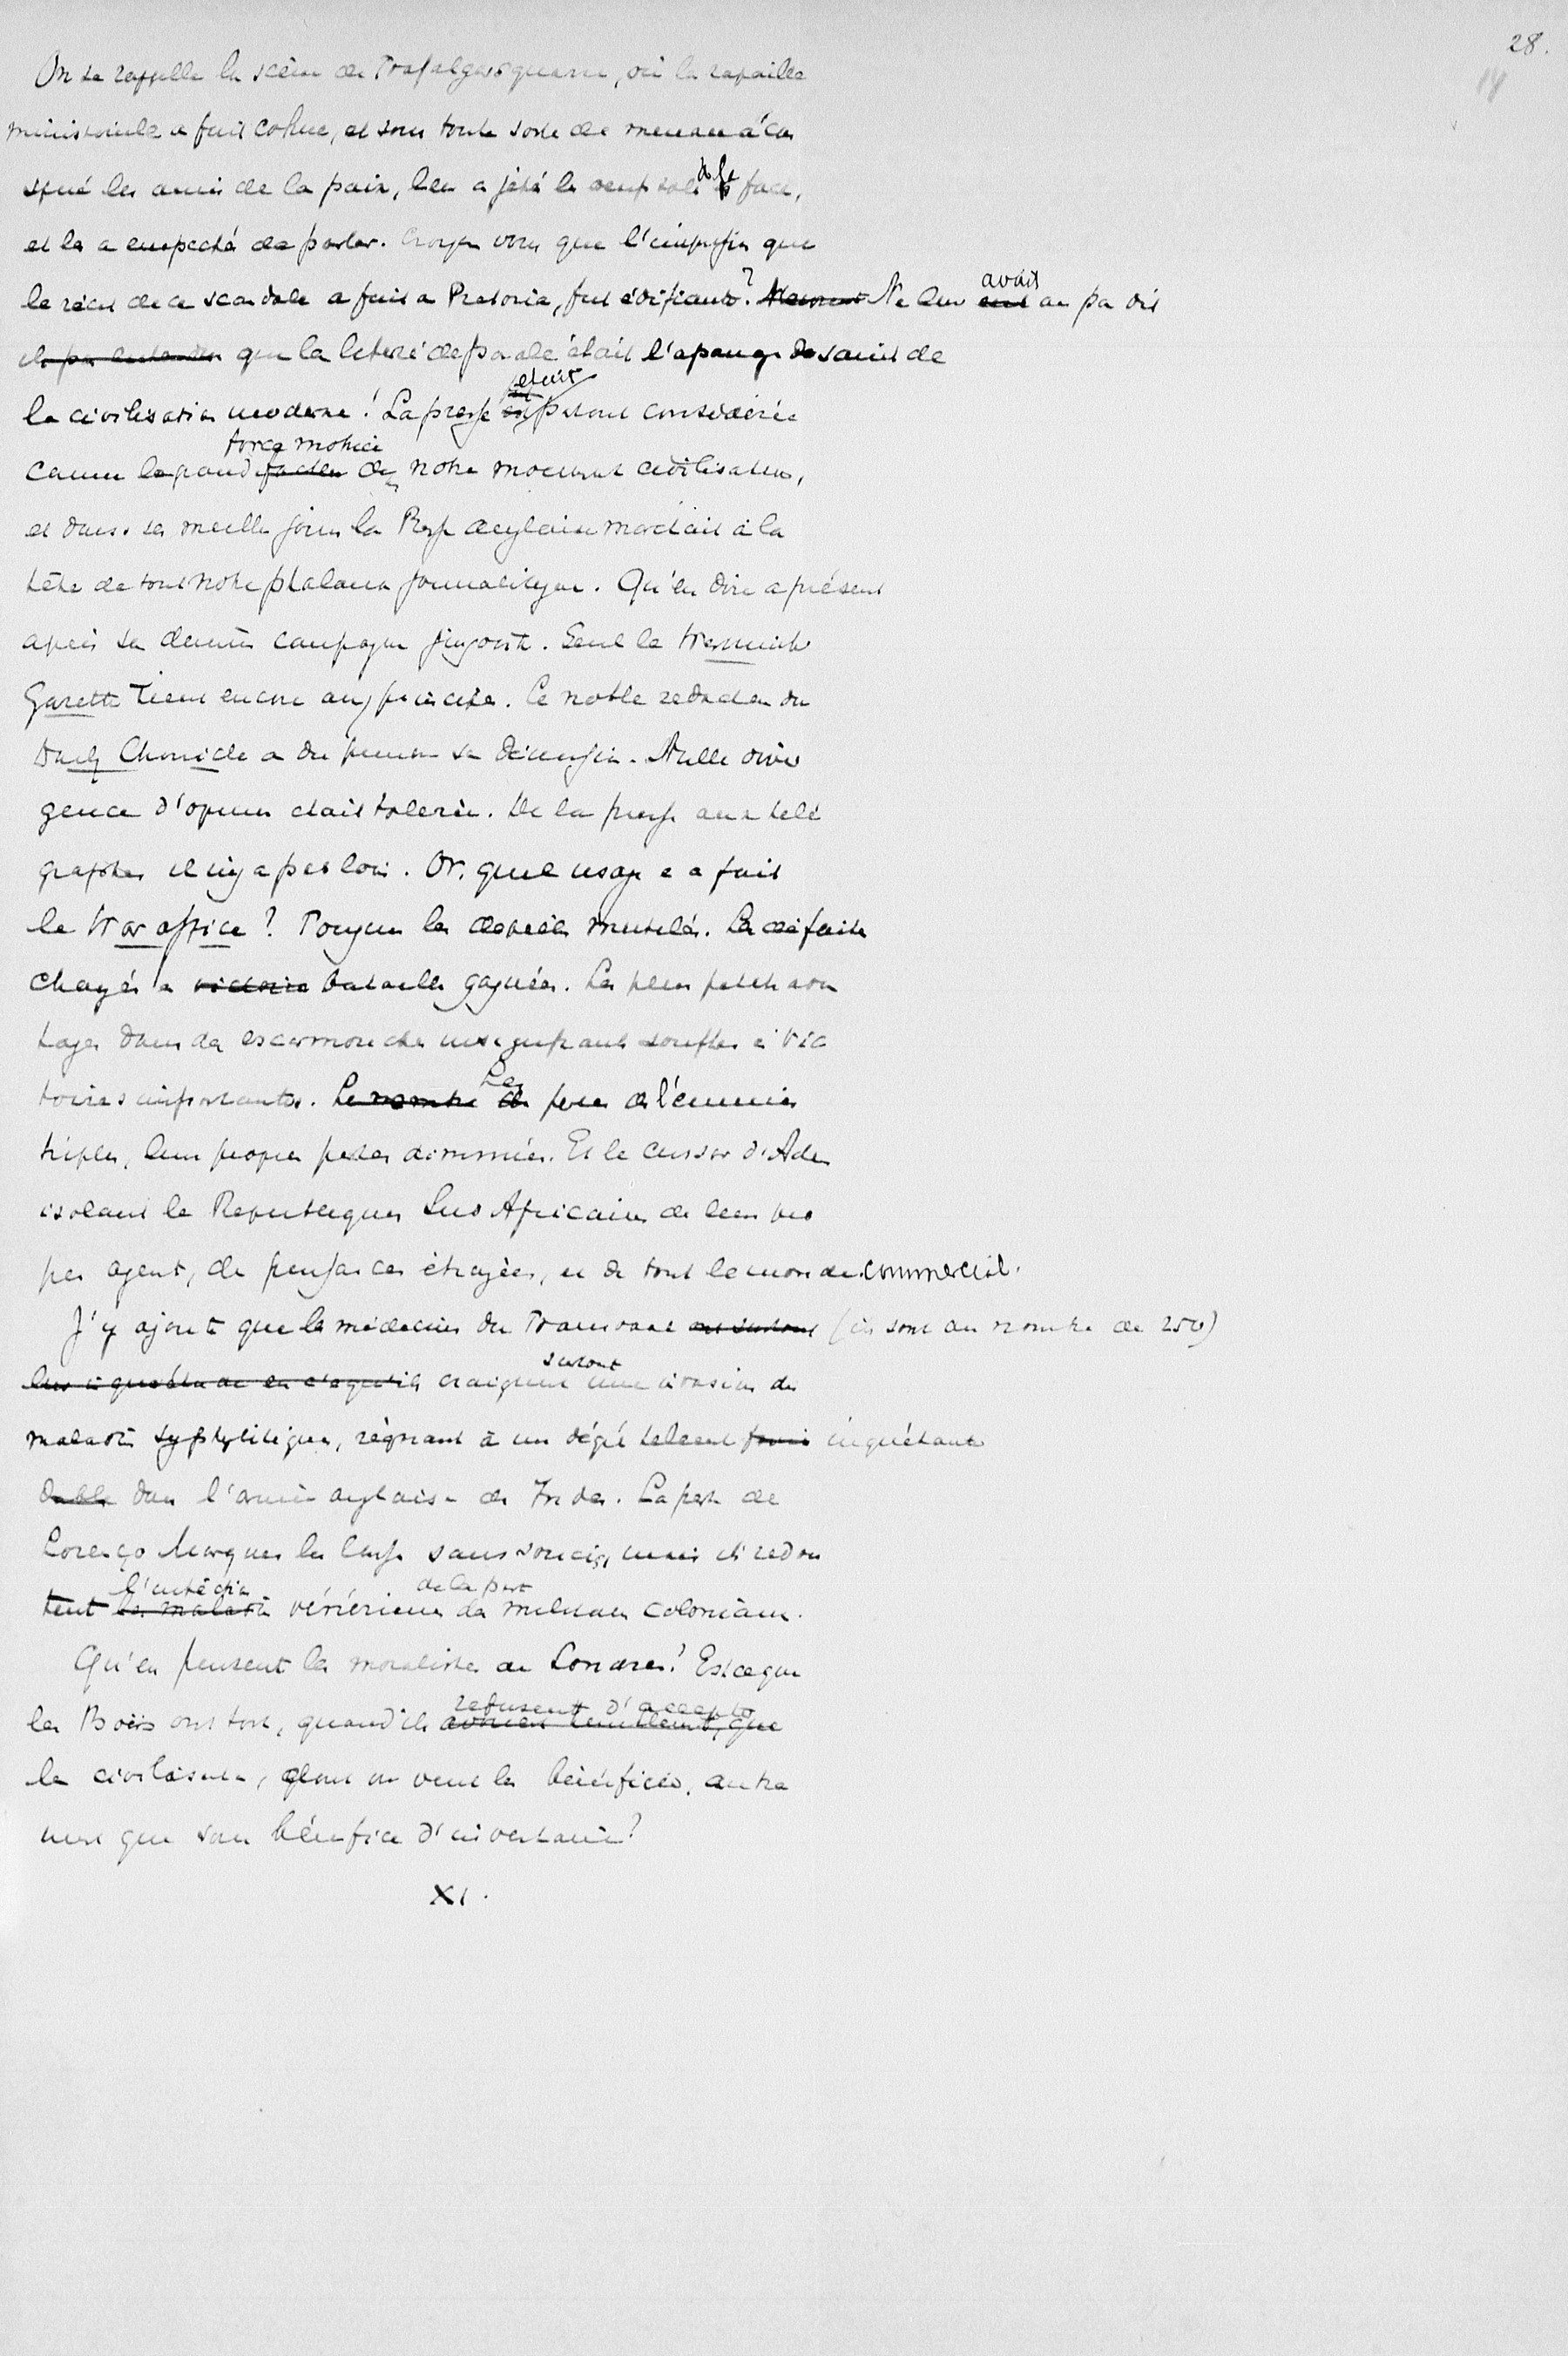 28.
14
On se rappelle la scène de Trafalgarsquare, où la racaille
ministerielle a fait cohue, et sous toute sorte de menaces a con
spué les amis de la paix, leur a jeté les oeufs sales à la face,
et les a empeché de parler. Croyez vous que l'impression que
le récit de ce scandale a fait a Pretoria, fut édifiante? Ne leur avait on pas dit
que la liberté de parole était l'apanage de
la civilisation moderne! La presse était partout considérée
comme la grande force motrice de notre mouvement civilisateur,
et dans ses meilleurs jours la Presse anglaise marchait à la
tête de toute notre phalanx journalistique. Qu'en dire a présent
après sa dernière campagne jingoiste. Seul la Westminster
Gazette tient encore aux principes. Le noble redacteur du
Daily Chronicle a du prendre sa démission. Nulle diver
gence d'opinion était tolerée. De la presse aux télé
graphes il n'y a pas loin. Or, quel usage en a fait
le War office? Toujours les depêches mutilées. Les défaites
changées en victoire batailles gagnées. Les plus petits avan
tages dans des escarmouches insignifiants soufflés en vic
toires importantes. Le nombre de Les pertes de l'ennemi
triples, leurs propres pertes diminuées. Et le censor d'Aden
isolant les Republiques Sud Africaines de leurs pro
pres agents, des puissances étrangères, et de tout le monde commercial.
J'y ajoute que les médecins du Transvaal ont surtout (ils sont au nombre de 250)
craignent surtout une invasion de
maladies syphylitiques, régnant à un dégré tellement inquiétant
dans l'armée anglaise des Indes. La peste de
Lorenço Marques les laisse sans soucis, mais ils redou
tent les maladies l'infection vénérienne de la part des militaires coloniaux.
Qu'en pensent les moralistes de Londres? Est ce que
les Boërs ont tort, quand ils refusent d'accepter
la civilisation, dont on veut les bénéficier, autre
ment que sous bénéfice d'inventaire?
XI.